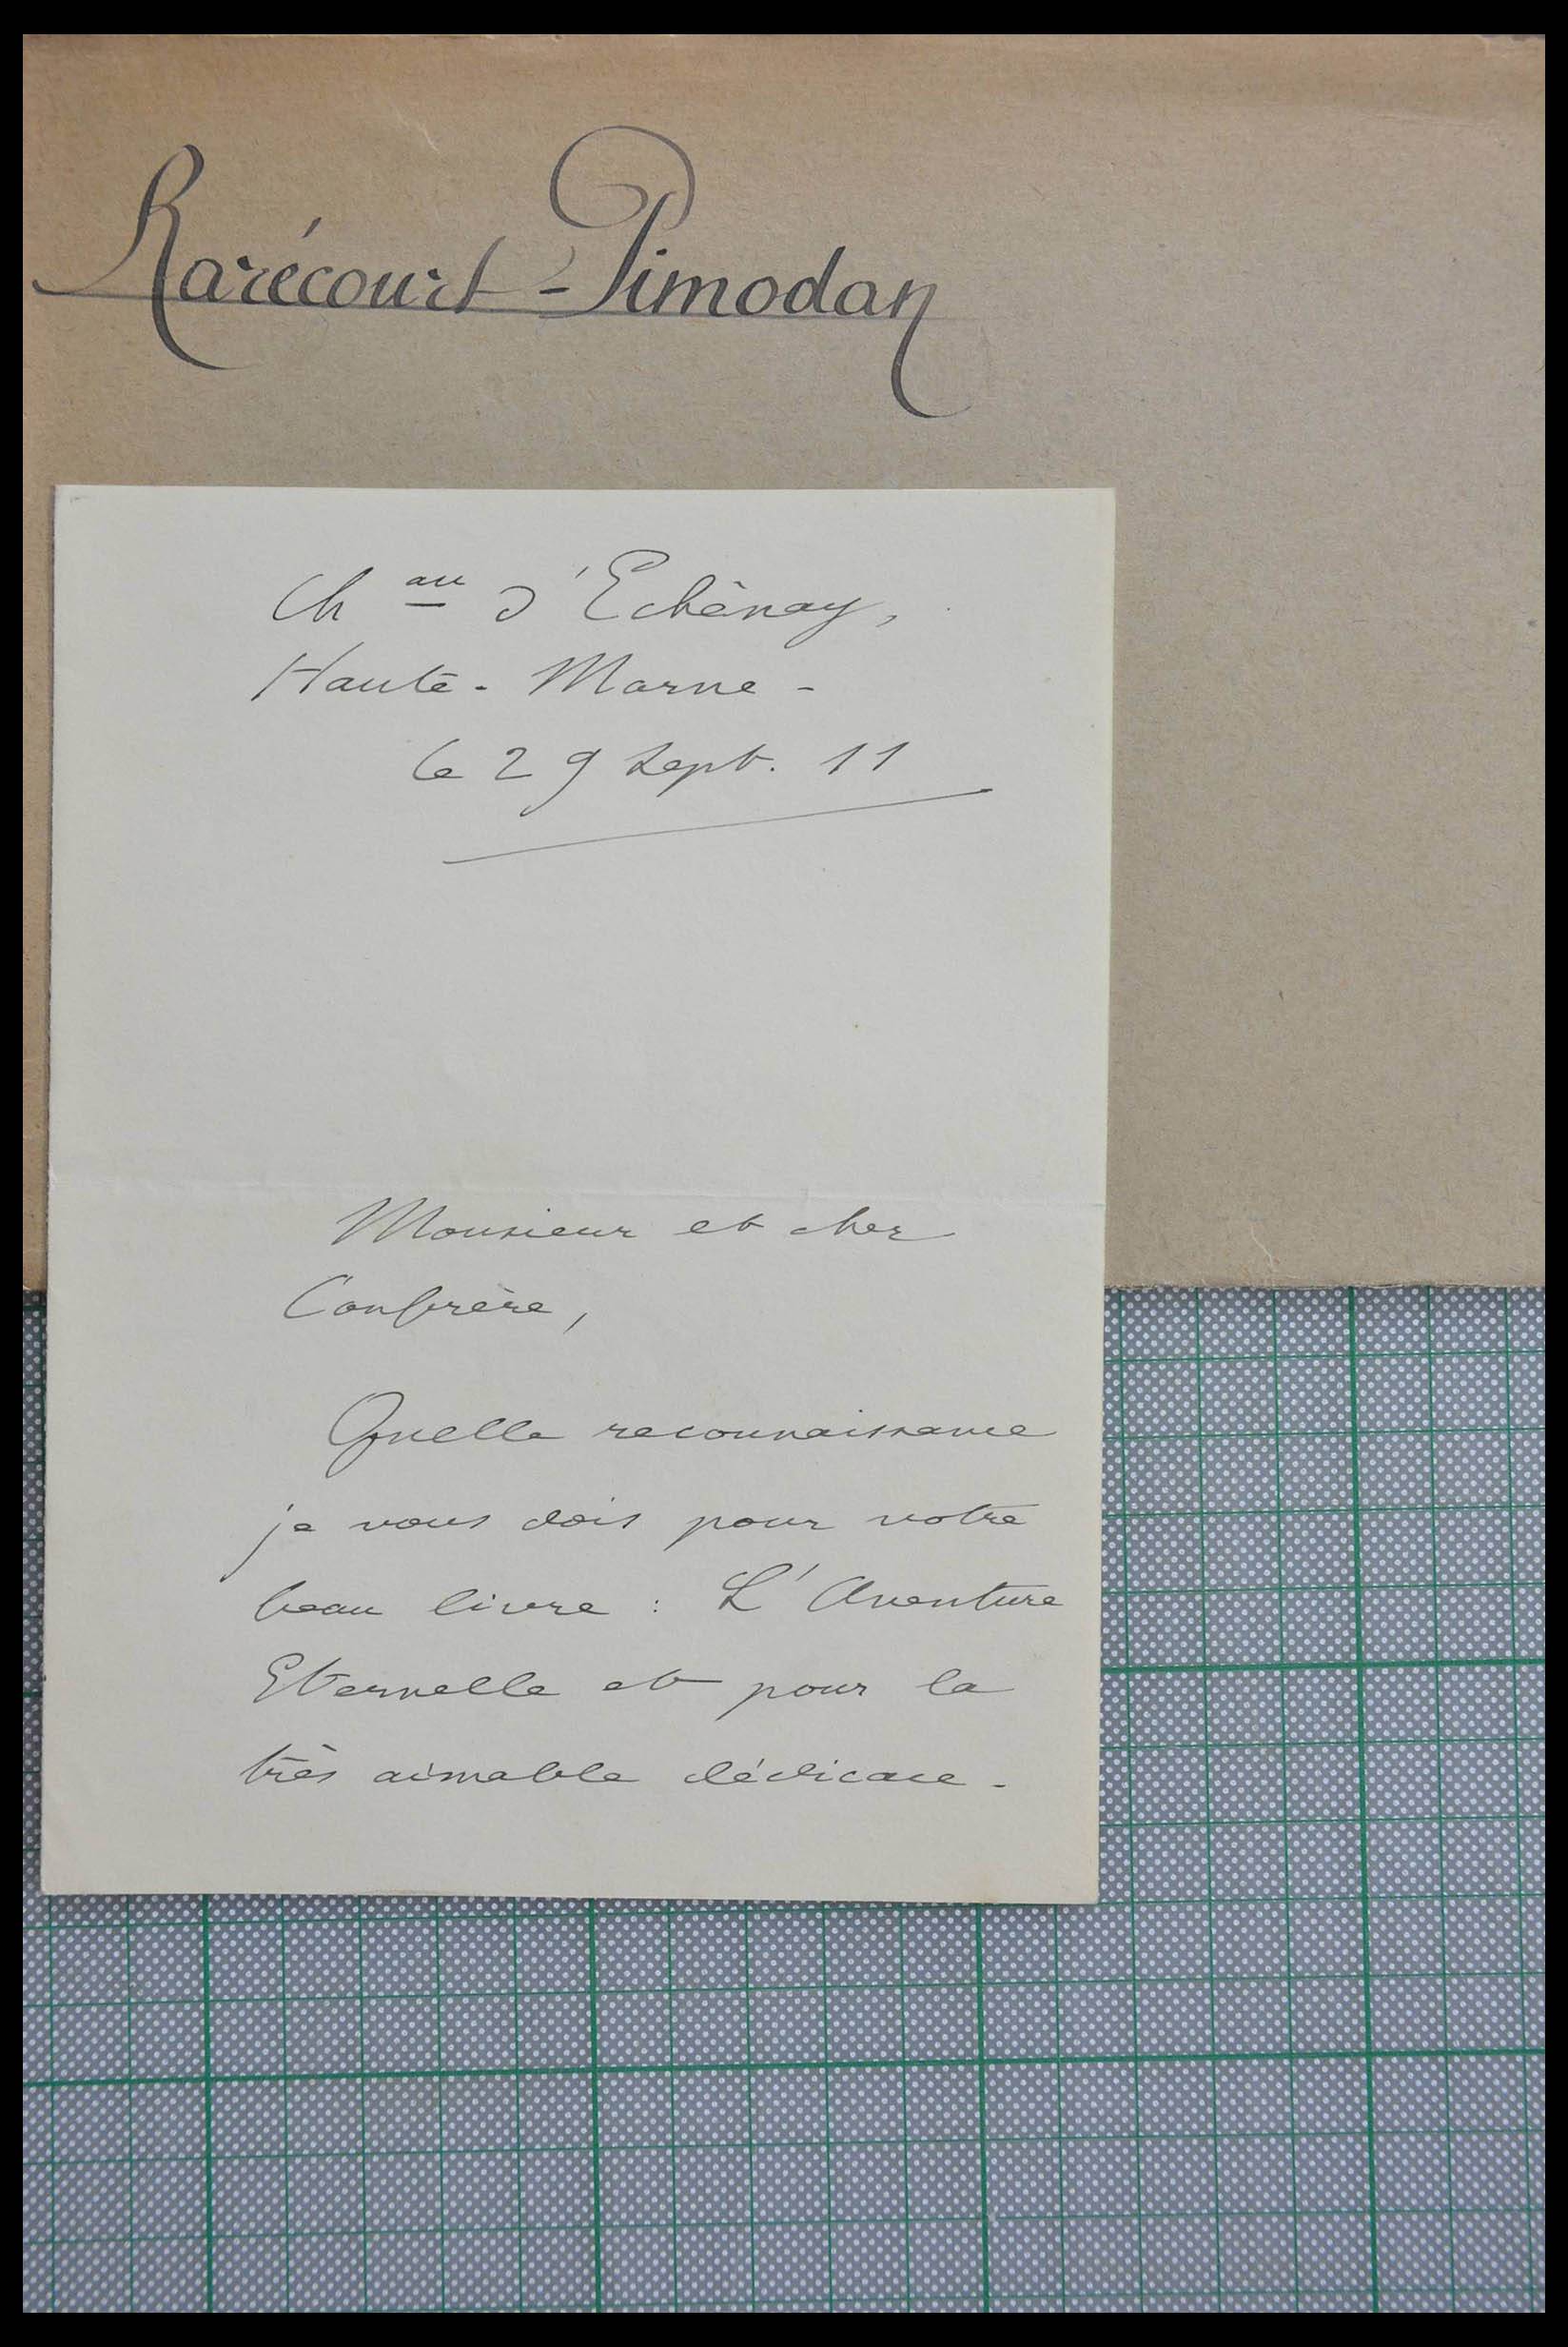 Rarécourt-Pimodan
Ch au d'Echênay,
Haute-Marne-
le 29 sept. 11
Monsieur et cher
Confrère,
Quelle reconnaissance
je vous dois pour votre
beau livre : L'Aventure
Eternelle et pour la
très aimable dédicace.